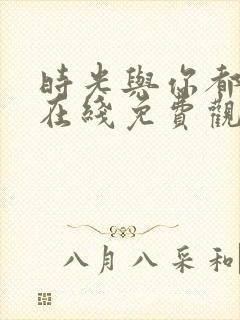 時光與你都
在綫免費觀
八月八采和